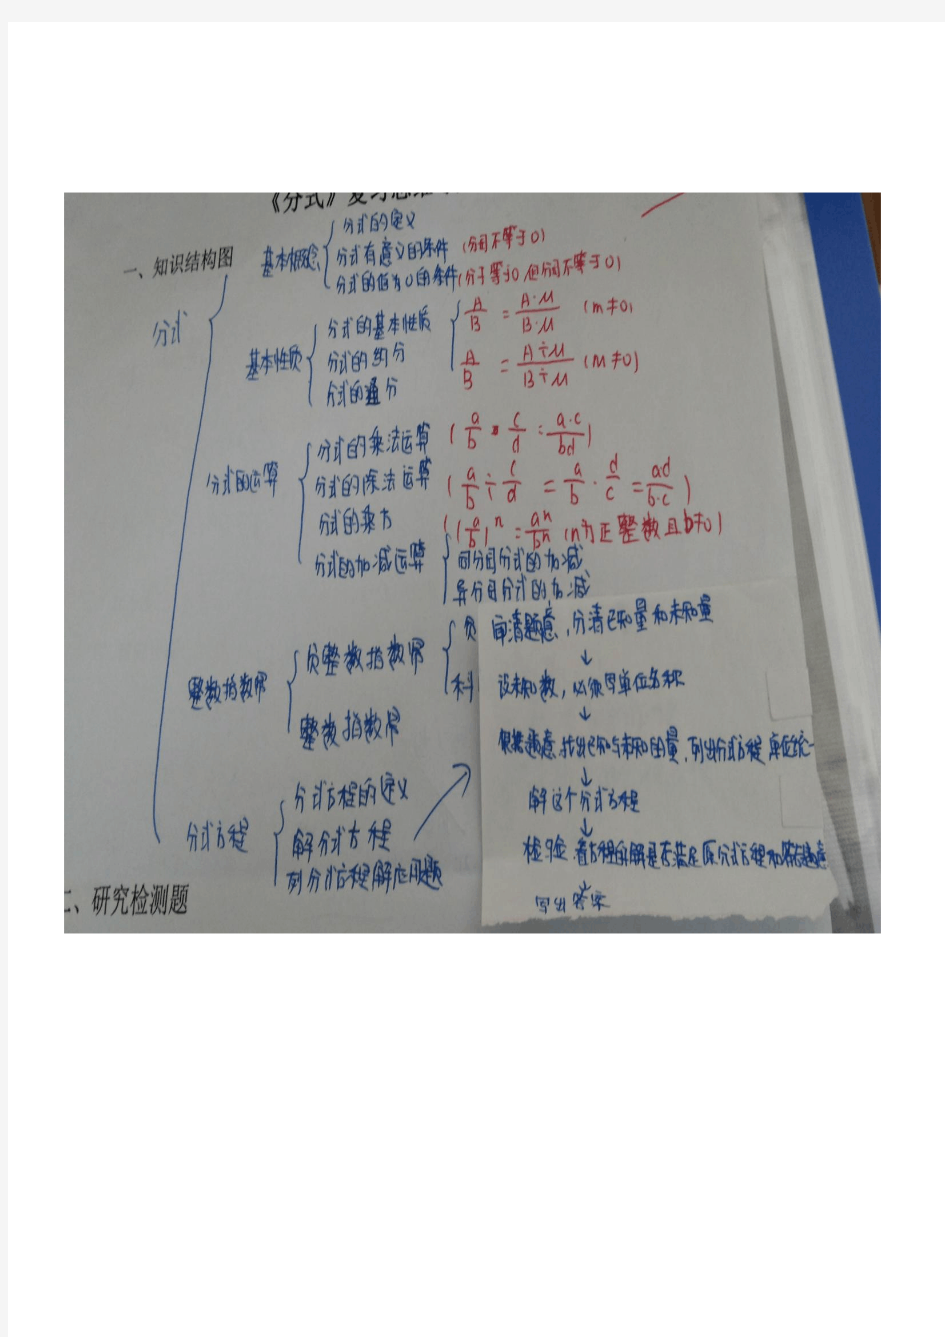 《分式》复习思维
一、知识结构图
分式
基本概念
分式的定义
分式有意义的条件 (分母不等于0)
分式的值为0的条件 (分子等于0 但分母不等于0)
基本性质
分式的基本性质
分式的约分
分式的通分
A/B = A·M/B·M (m≠0)
A/B = A÷M/B÷M (m≠0)
分式的运算
分式的乘法运算 (a/b · c/d = a·c/bd)
分式的除法运算 (a/b ÷ c/d = a/b · d/c = a·d/b·c)
分式的乘方 ((a/b)^n = a^n/b^n (n为正整数且b≠0)
分式的加减运算
同分母分式的加减
异分母分式的加减
整数指数幂
负整数指数幂
负
科
整数指数幂
分式方程
分式方程的定义
解分式方程
列分式方程解应用题
审清题意，分清已知量和未知量
↓
设未知数，必须写单位名称
↓
根据题意找出已知与未知的量，列出分式方程 单位统一
↓
解这个分式方程
↓
检验：看方程的解是否满足原分式方程和符合题意
↓
写出答案
二、研究检测题